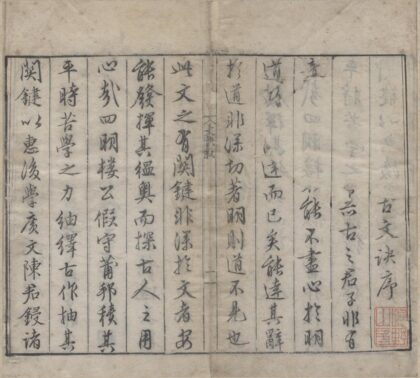 古文訣序
古之君子非有
意能不盡心於明
道達而已矣能達其辭
於道非深切著明則道不見也
此文之有関鍵非深於文者安
能發揮其緼奥而探古人之用
心哉四明樓公假守莆邦積其
平時苦學之力紬繹古作抽其
関鍵以惠後學廣文陳君鋟諸